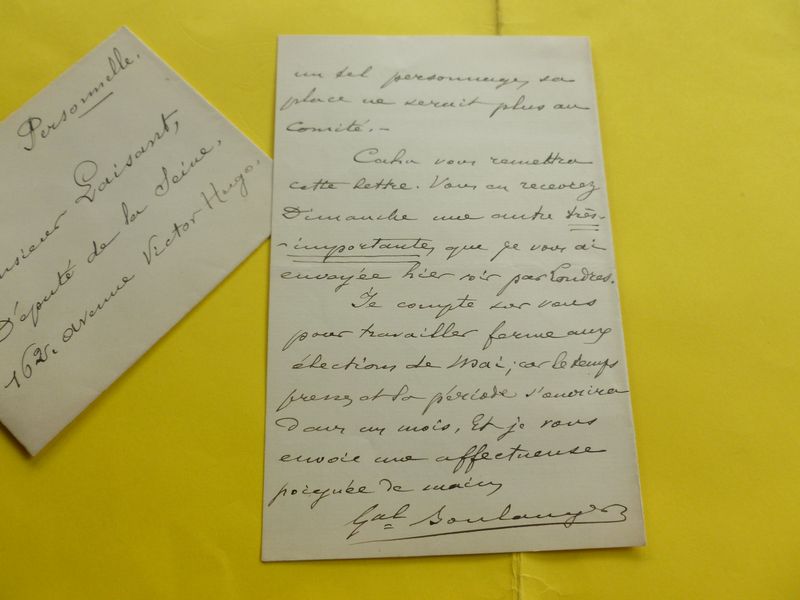 Personnelle.
nsieur Laisant,
Député de la Seine,
162. avenue Victor Hugo.
un tel personnage, sa
place ne serait plus au
Comité. –
Cahn vous remettra
cette lettre. Vous en recevrez
Dimanche une autre très-
-importante, que je vous ai
envoyée hier soir par Londres.
Je compte sur vous
pour travailler ferme aux
élections de Mai; car le temps
presse, et la période s'ouvrira
dans un mois. Et je vous
envoie une affectueuse
poignée de main,
Gal Boulanger